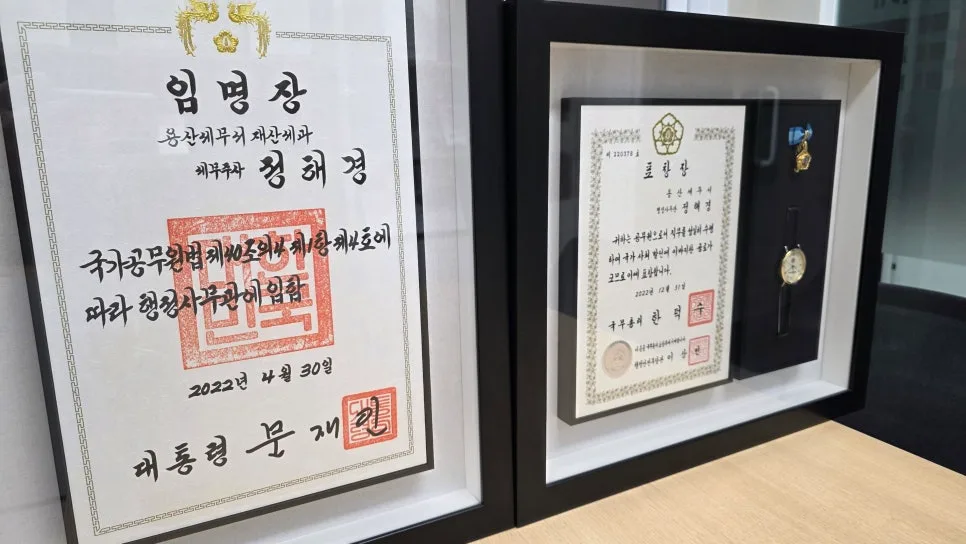 임명장
용산세무서 재산세과
세무주사 정해경
국가공무원법 제40조의4 제1항 제4호에
따라 행정사무관에 임함
대한민국
2022년 4월 30일
대통령 문재인
제 220378 호
표창장
용산세무서
행정사무관 정해경
귀하는 공무원으로서 직무를 성실히 수행
하여 국가 사회 발전에 이바지한 공로가
크므로 이에 표창합니다.
2022년 12월 31일
국무총리 한덕수
행정안전부장관 이상민